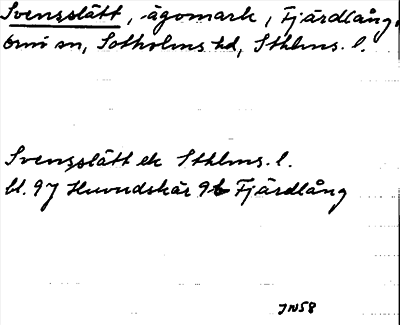 Svensslätt, ägomark, Fjärdlång,
Ornö sn, Sotholms hd, Sthlms. l.
Svensslätt ek Sthlms. l.
bl. 97 Huvudskär 9b Fjärdlång
JN58